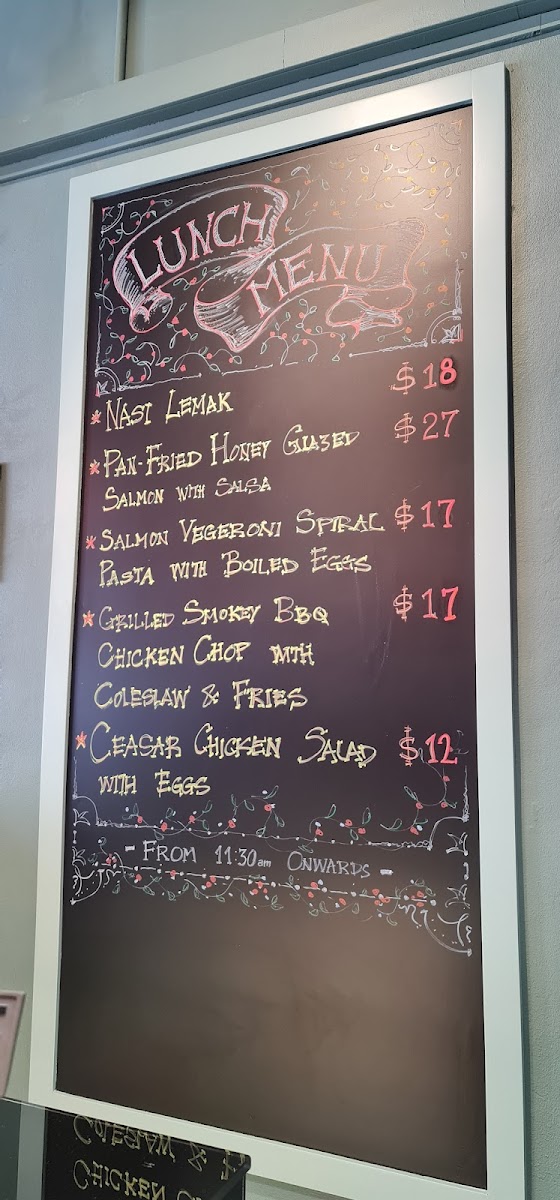 LUNCH
MENU
* NASI LEMAK $18
* PAN-FRIED HONEY GLAZED $27
SALMON WITH SALSA
* SALMON VEGERONI SPIRAL $17
PASTA WITH BOILED EGGS
* GRILLED SMOKEY BBQ $17
CHICKEN CHOP WITH
COLESLAW & FRIES
* CEASAR CHICKEN SALAD $12
WITH EGGS
- FROM 11:30am ONWARDS -
COLESLAW & F
CHICKEN C